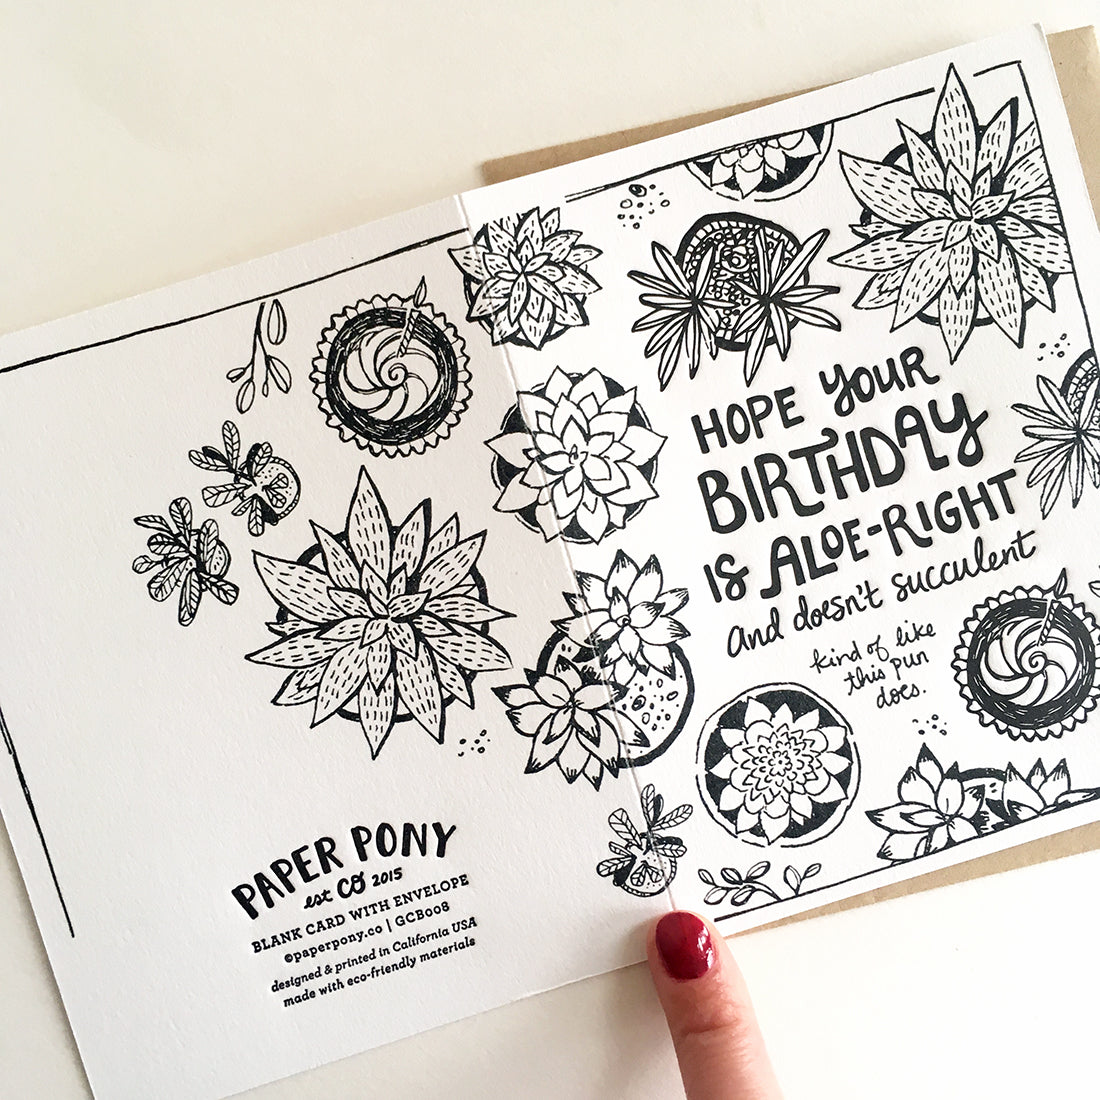 HOPE YOUR
BIRTHDAY
IS ALOE-RIGHT
and doesn't succulent
kind of like
this pun
does.
PAPER PONY
est CO 2015
BLANK CARD WITH ENVELOPE
©paperpony.co | GCB008
designed & printed in California USA
made with eco-friendly materials